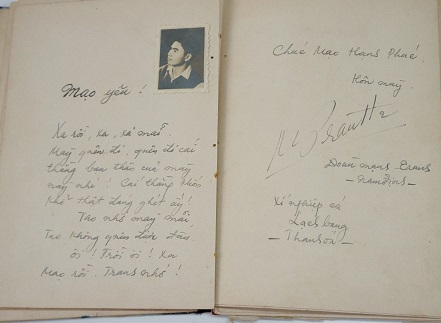 Mạo yêu !
Xa rồi, xa, xa mãi.
Mày quên đi, quên đi cái
thằng bạn thân của mày
này nhé ! Cái thằng
thật đáng ghét ấy!
Tao nhớ mày mãi,
Tao không quên được đâu
ơi ! Trời ơi ! Xa
Mạo rồi. Trans nhớ !
Chúc Mạo Hạnh Phúc.
Hôn mày.
Đoàn mạnh Trans
- Namđịnh -
Xí nghiệp cá
Lạch bạng
- Thanhóa -